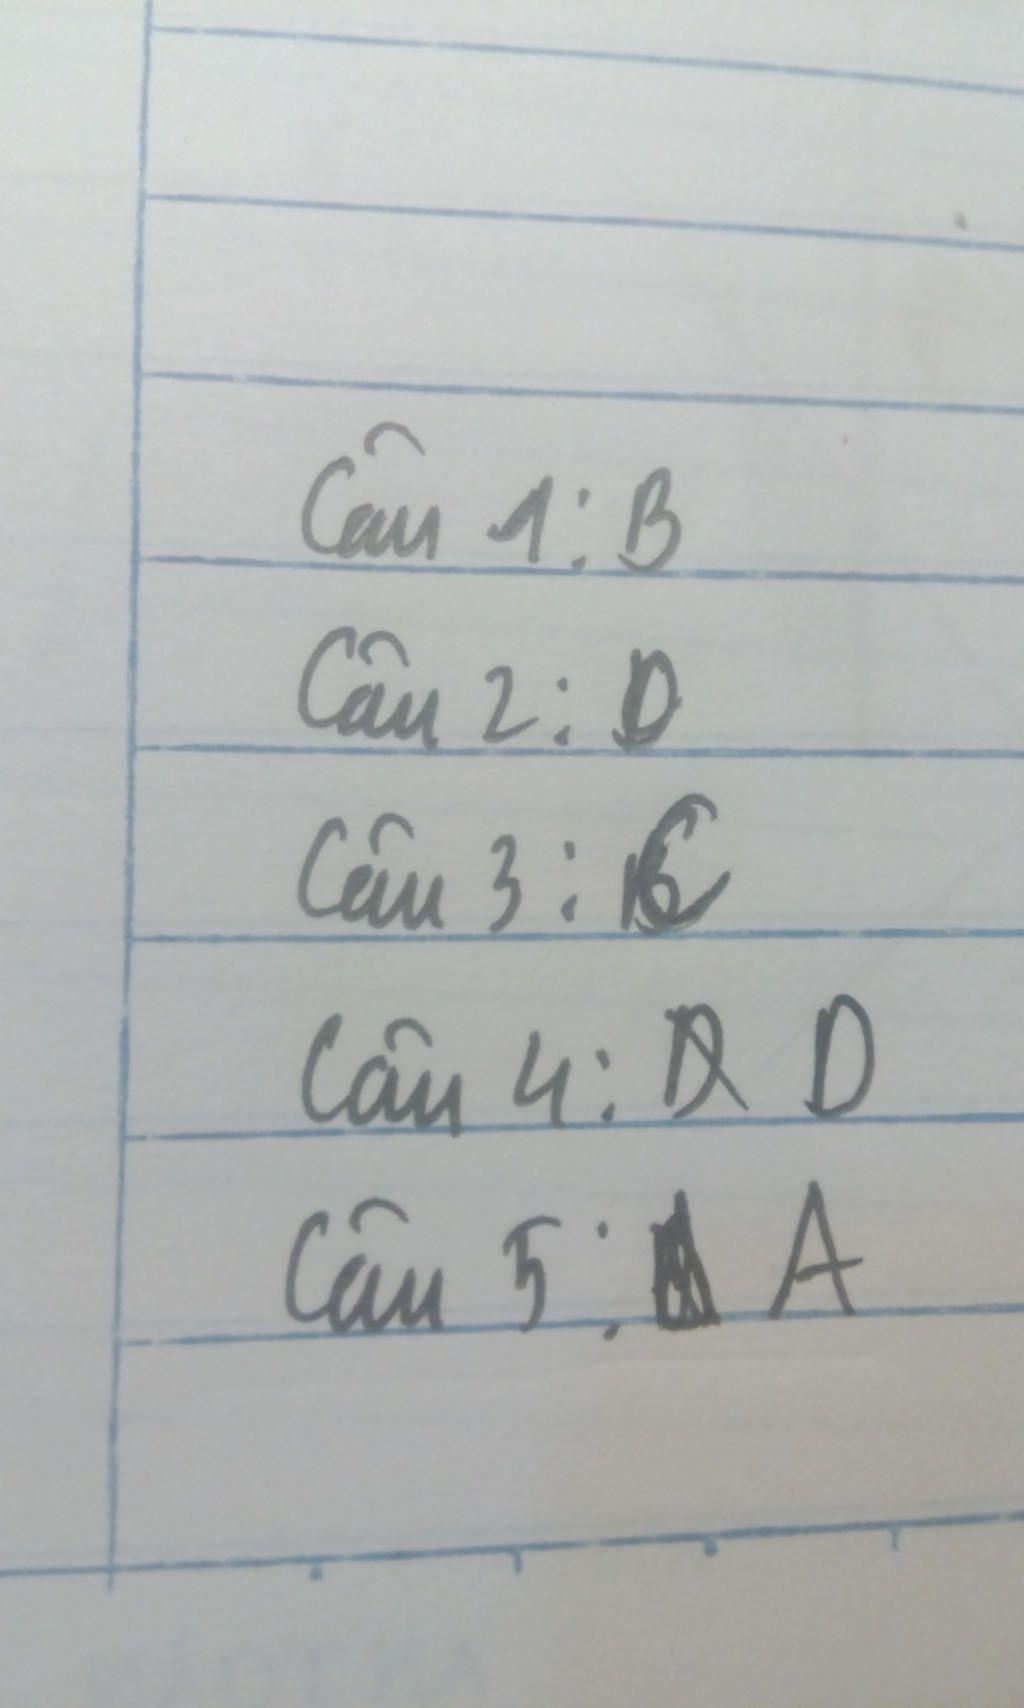 Câu 1: B
Câu 2: D
Câu 3: C
Câu 4: D
Câu 5: A